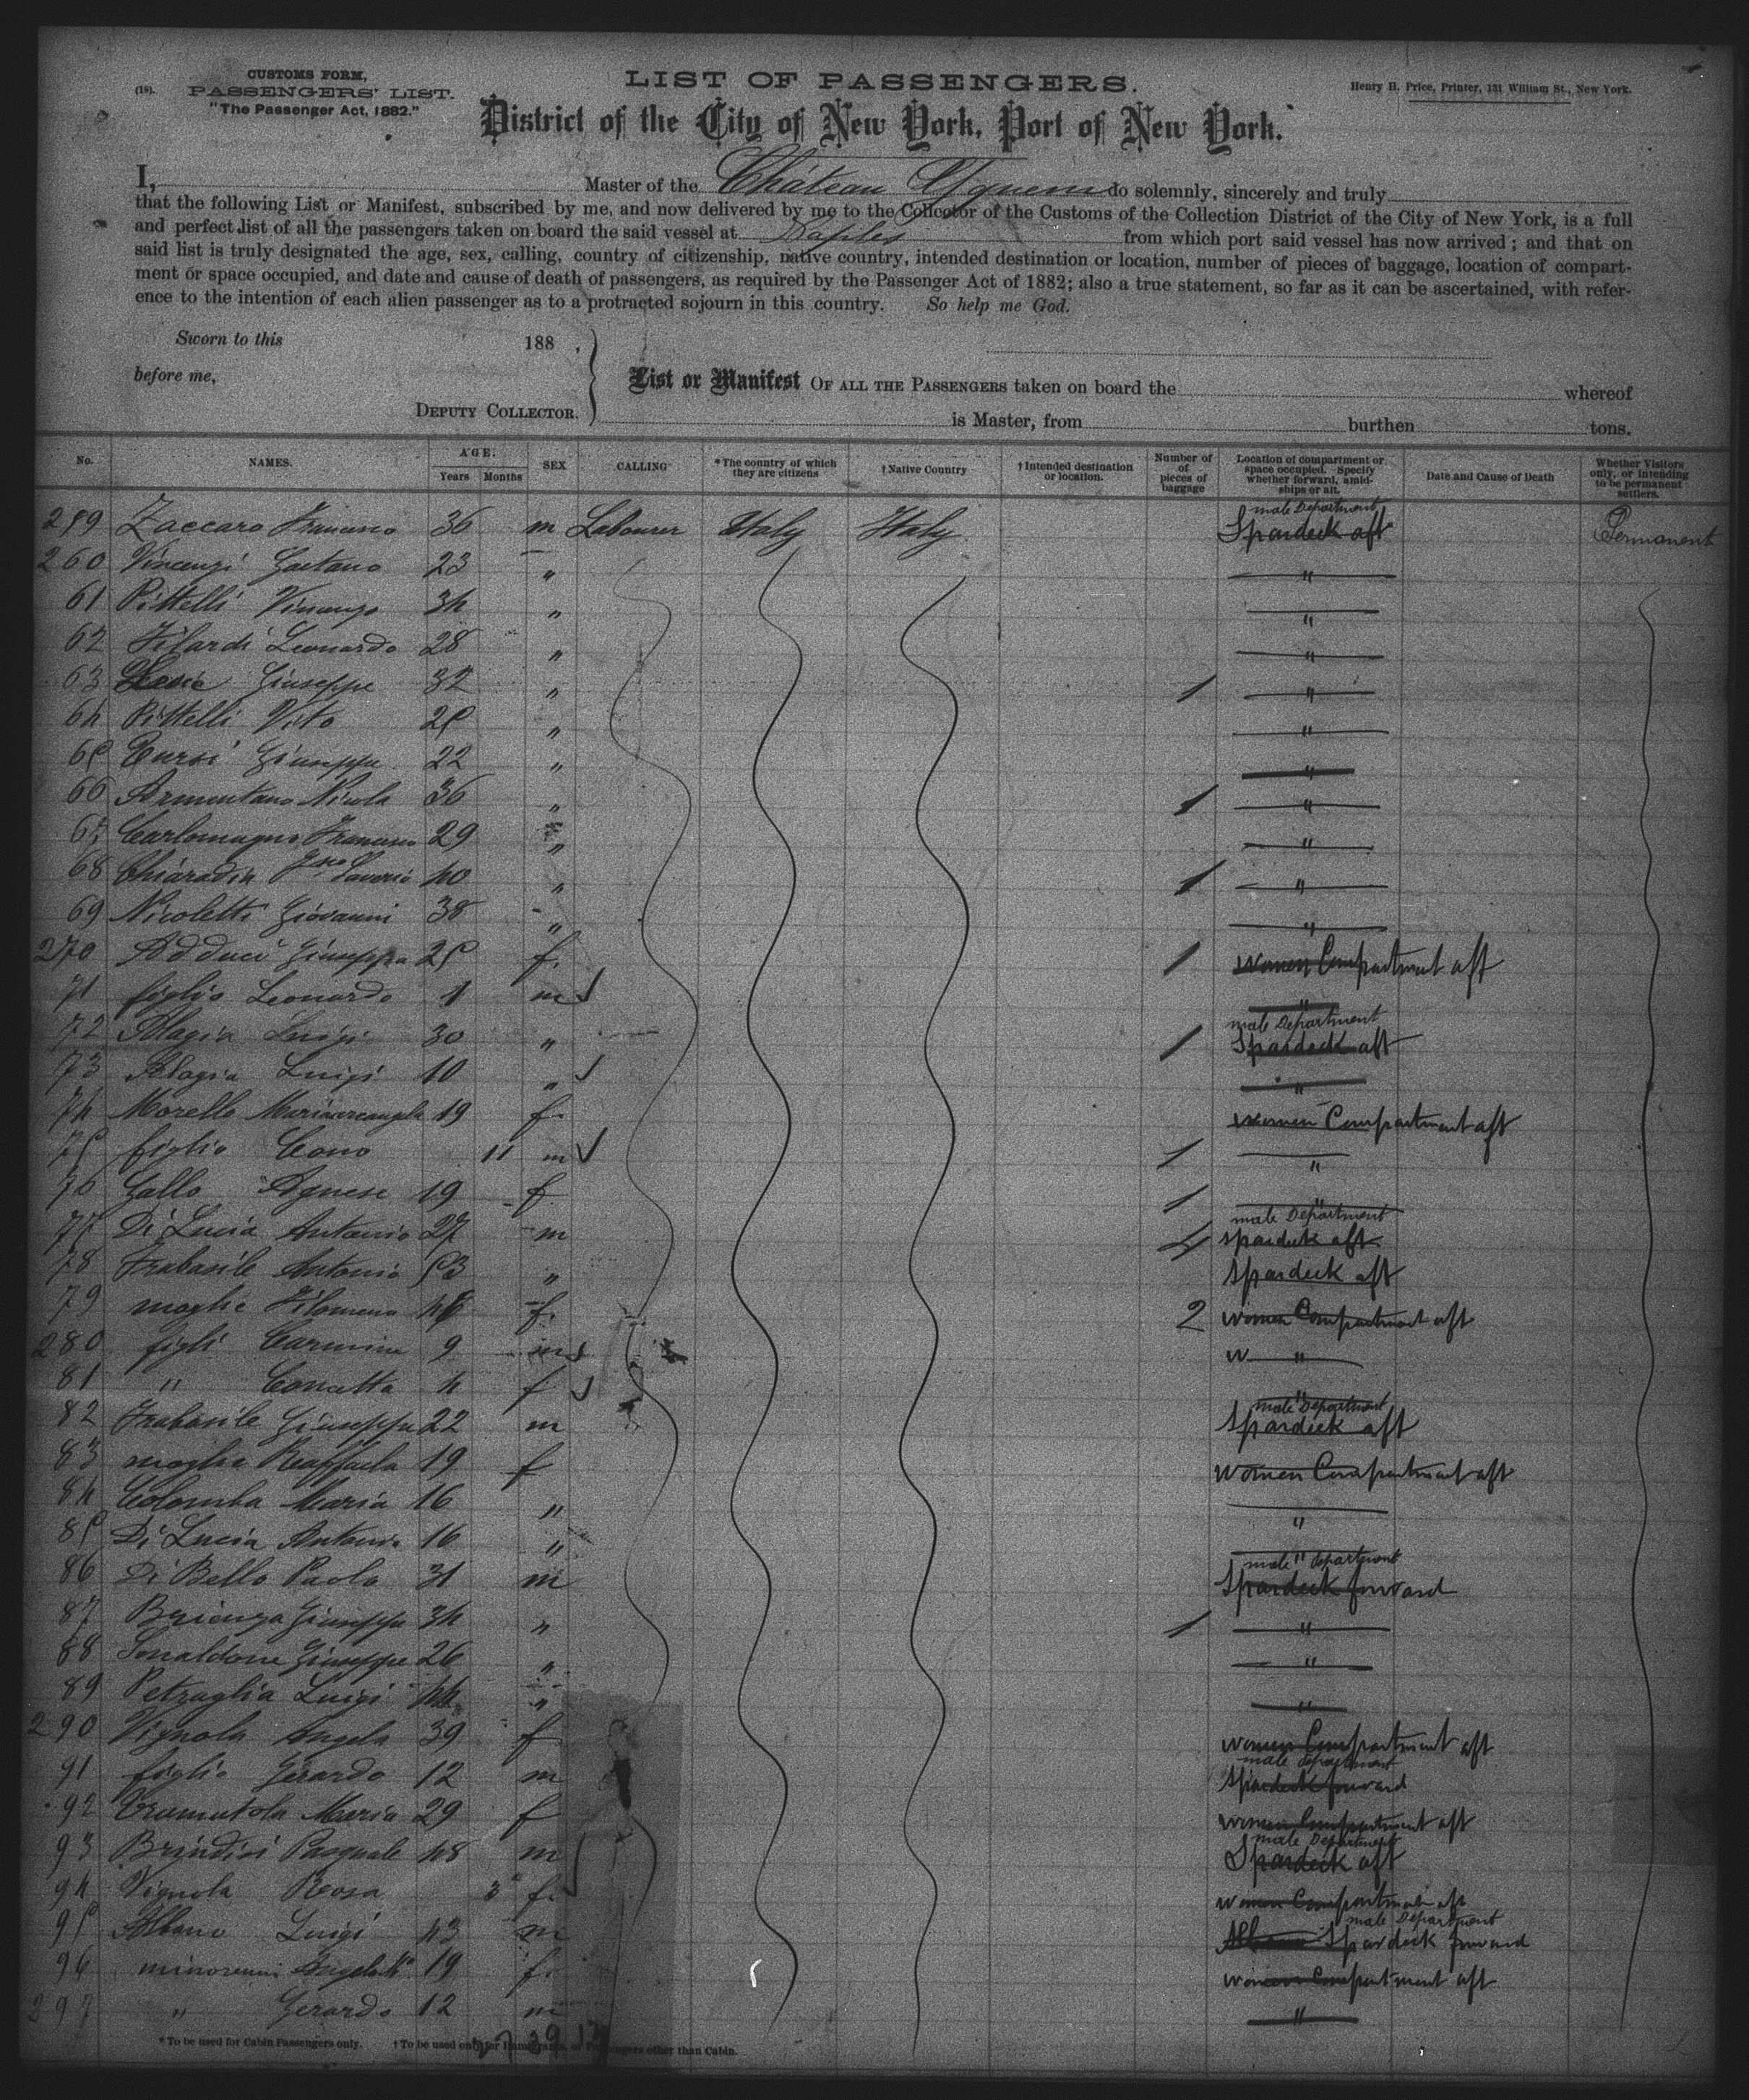 (18).
CUSTOMS FORM,
PASSENGERS' LIST.
"The Passenger Act, 1882."
LIST OF PASSENGERS.
Henry H. Price, Printer, 131 William St., New York.
District of the City of New York, Port of New York.
I, Master of the Château Yquem do solemnly, sincerely and truly
that the following List or Manifest, subscribed by me, and now delivered by me to the Collector of the Customs of the Collection District of the City of New York, is a full
and perfect list of all the passengers taken on board the said vessel at Naples from which port said vessel has now arrived; and that on
said list is truly designated the age, sex, calling, country of citizenship, native country, intended destination or location, number of pieces of baggage, location of compart-
ment or space occupied, and date and cause of death of passengers, as required by the Passenger Act of 1882; also a true statement, so far as it can be ascertained, with refer-
ence to the intention of each alien passenger as to a protracted sojourn in this country. So help me God.
Sworn to this 188 ,
before me,
DEPUTY COLLECTOR.
List or Manifest OF ALL THE PASSENGERS taken on board the whereof
is Master, from burthen tons.
No. NAMES. AGE. Years Months SEX CALLING *The country of which they are citizens †Native Country †Intended destination or location. Number of pieces of baggage Location of compartment or space occupied. Specify whether forward, amidships or aft. Date and Cause of Death Whether Visitors only, or intending to be permanent settlers.
259 Zaccaro Francesco 36 m Labourer Italy Italy male Department Spardeck aft Permanent
260 Vincenzi Gaetano 23 " "
61 Pittelli Vincenzo 34 " "
62 Filardi Leonardo 28 " "
63 Giuseppe 32 " 1 "
64 Pittelli Vito 25 " "
65 Cursi Giuseppe 22 " "
66 Armentano Nicola 36 " 1 "
67 Carlomagno Francesco 29 " "
68 Chiaradia Saverio 40 " 1 "
69 Nicoletti Giovanni 38 " "
270 Adduci Giuseppa 25 f. 1 women Compartment aft
71 figlio Leonardo 1 m "
72 Alagia Luigi 30 " 1 male Department Spardeck aft
73 Alagia Luigi 10 " "
74 Morello Mariarcangela 19 f. women Compartment aft
75 figlio Cono 11 m 1 "
76 Gallo Agnese 19 f 1 "
77 Di Lucia Antonio 27 m male Department spardeck aft
78 Trabasile Antonio 53 " Spardeck aft
79 moglie Filomena f. 2 women Compartment aft
280 figli Carmine 9 m "
81 " Concetta 4 f "
82 Trabasile Giuseppe 22 m male Department Spardeck aft
83 moglie Raffaela 19 f women Compartment aft
84 Colomba Maria 16 " "
85 Di Lucia Antonia 16 " "
86 Di Bello Paolo 31 m male Department Spardeck forward
87 Brienza Giuseppe 34 " 1 "
88 Giuseppe 26 " "
89 Petraglia Luigi 44 " "
290 Vignola Angela 39 f women Compartment aft
91 figlio Gerardo 12 m male department Spardeck forward
92 Tramutola Maria 29 f women Compartment aft
93 Brindisi Pasquale 48 m male Department Spardeck aft
94 Vignola Rosa 3 f. women Compartment aft
95 Albano Luigi 43 m male Department Spardeck forward
96 minorenni 19 f. women Compartment aft
297 " Gerardo 12 m "
*To be used for Cabin Passengers only. †To be used only for Immigrants, or Passengers other than Cabin.